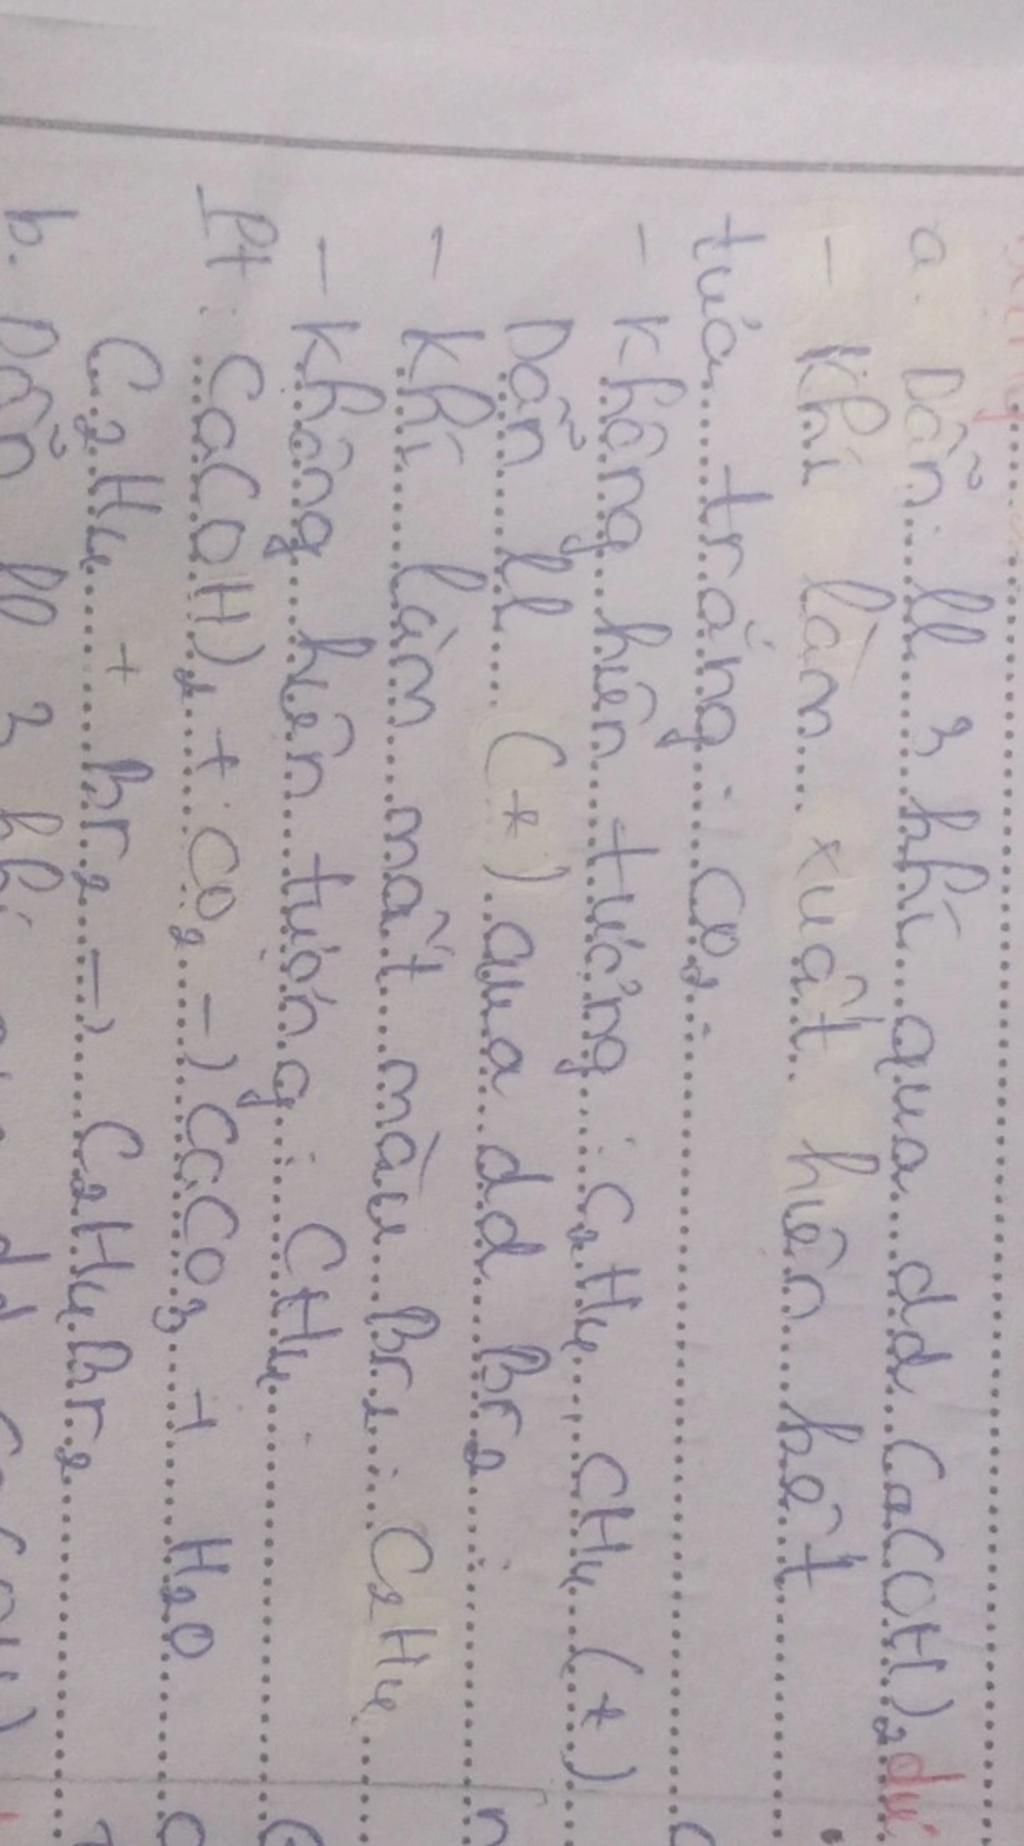 a. Dẫn ll 3 khí qua dd Ca(OH)2 dư
- Khí làm xuất hiện kết
tủa trắng: CO2
- Không hiện tượng: C2H4, CH4 (*)
Dẫn ll (*) qua dd Br2
- Khí làm mất màu Br2: C2H4
- Không hiện tượng: CH4
Pt: Ca(OH)2 + CO2 -> CaCO3 + H2O
C2H4 + Br2 -> C2H4Br2
b. Dẫn ll 3 khí